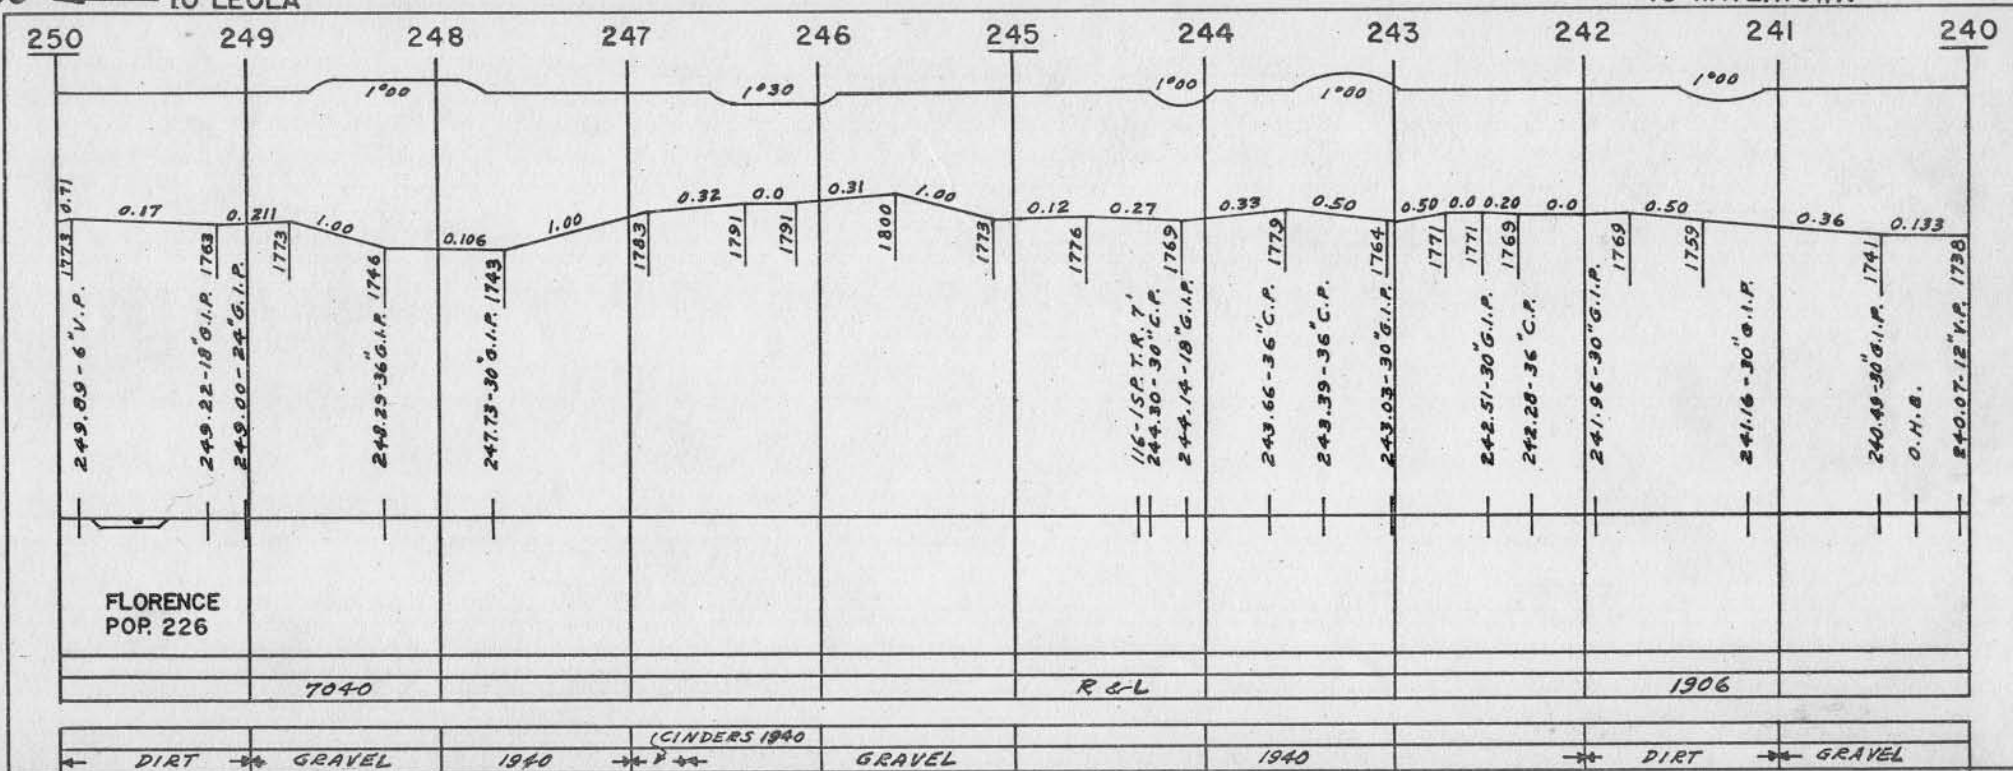 TO LEOLA
250 249 248 247 246 245 244 243 242 241 240
1°00 1°30 1°00 1°00 1°00
0.71 0.17 0.211 1.00 0.106 1.00 0.32 0.0 0.31 1.00 0.12 0.27 0.33 0.50 0.50 0.0 0.20 0.0 0.50 0.36 0.133
1773 1763 1773 1746 1743 1783 1791 1791 1800 1773 1776 1769 1779 1764 1771 1771 1769 1769 1759 1741 1738
249.89-6"V.P.
249.22-18"G.I.P.
249.00-24"G.I.P.
248.29-36"G.I.P.
247.73-30"G.I.P.
116-1SP.T.R. 7'
244.30-30"C.P.
244.14-18"G.I.P.
243.66-36"C.P.
243.39-36"C.P.
243.03-30"G.I.P.
242.51-30"G.I.P.
242.28-36"C.P.
241.96-30"G.I.P.
241.16-30"G.I.P.
240.49-30"G.I.P.
O.H.B.
240.07-12"V.P.
FLORENCE
POP. 226
7040 R & L 1906
(CINDERS 1940
DIRT GRAVEL 1940 GRAVEL 1940 DIRT GRAVEL